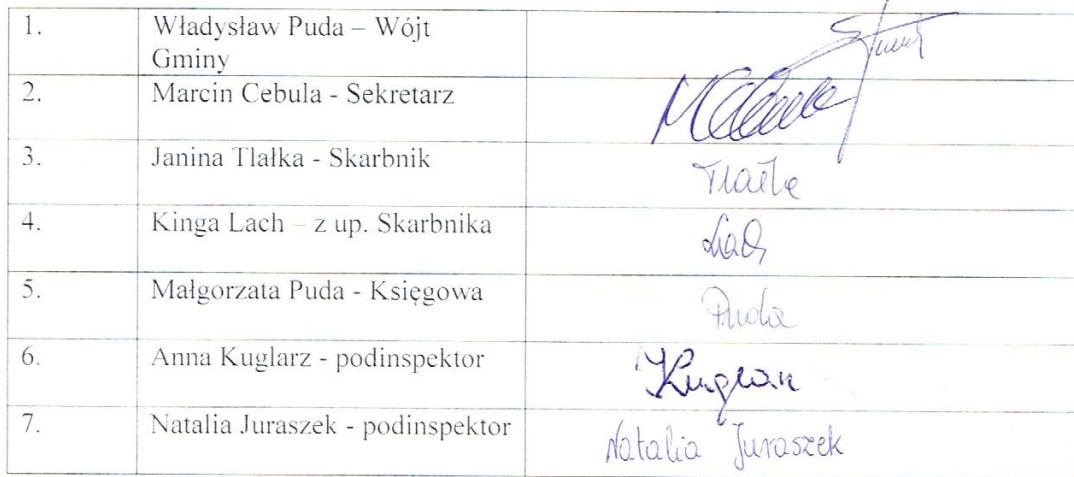 1. Władysław Puda – Wójt
Gminy
2. Marcin Cebula - Sekretarz
3. Janina Tlałka - Skarbnik Tlałka
4. Kinga Lach – z up. Skarbnika Lach
5. Małgorzata Puda - Księgowa Puda
6. Anna Kuglarz - podinspektor Kuglarz
7. Natalia Juraszek - podinspektor Natalia Juraszek